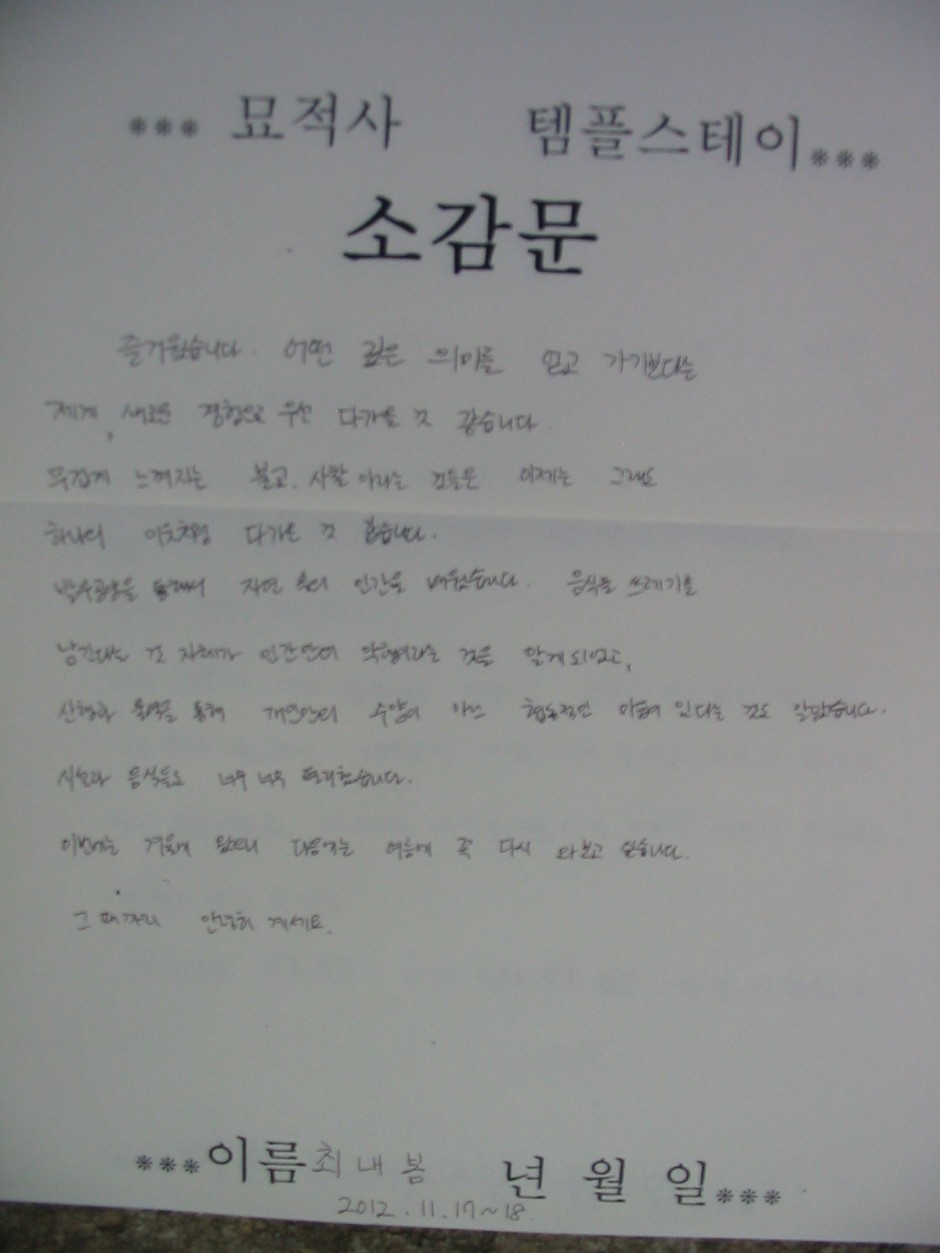 *** 묘적사 템플스테이 ***
소감문
즐거웠습니다. 어떤 깊은 의미를 얻고 가기보다는
제게, 새로운 경험으로 우선 다가온 것 같습니다.
무겁게 느껴지는 불교, 사찰 이라는 것들은 이제는 그래도
하나의 이웃처럼 다가온 것 같습니다.
발우공양을 통해서 자연 속의 인간을 배웠습니다. 음식물 쓰레기를
남긴다는 것 자체가 인간만의 악행이라는 것을 알게 되었고,
산행과 울력을 통해 개인만의 수양이 아닌 협동적인 마음이 있다는 것도 알았습니다.
시설과 음식들도 너무 너무 편리했습니다.
이번에는 겨울에 왔으니 다음에는 여름에 꼭 다시 와보고 싶습니다.
그 때까지 안녕히 계세요.
***이름 최내봄 년 월 일***
2012.11.17~18.